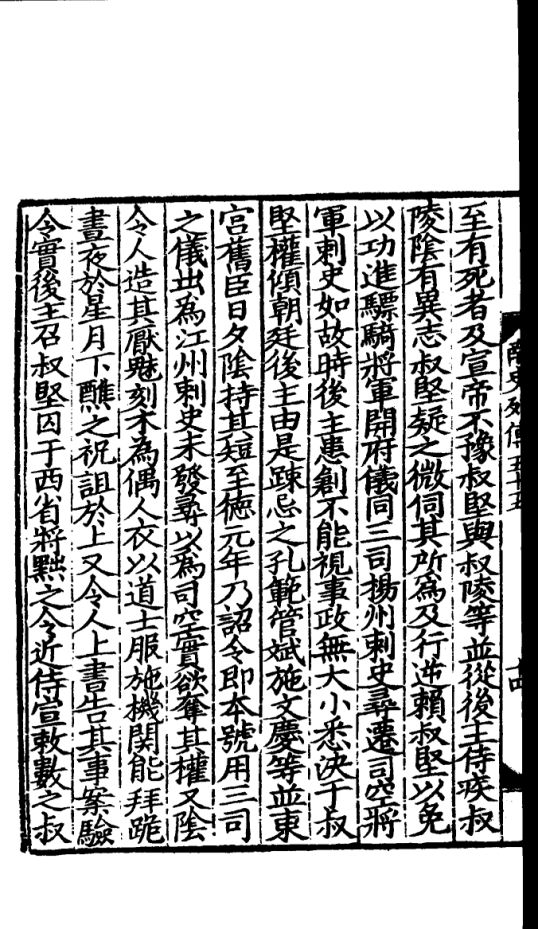 南史列傳五十五
十四
至有死者及宣帝不豫叔堅與叔陵等並從後主侍疾叔
陵陰有異志叔堅疑之微伺其所爲及行逆賴叔堅以免
以功進驃騎將軍開府儀同三司揚州刺史尋遷司空將
軍刺史如故時後主患創不能視事政無大小悉決于叔
堅權傾朝廷後主由是疎忌之孔範管斌施文慶等並東
宮舊臣日夕陰持其短至德元年乃詔令即本號用三司
之儀出為江州刺史未發尋以為司空實欲奪其權又陰
令人造其厭魅刻木為偶人衣以道士服施機関能拜跪
晝夜於星月下醮之祝詛於上又令人上書告其事案驗
令實後主召叔堅囚于西省將黜之令近侍宣敕數之叔